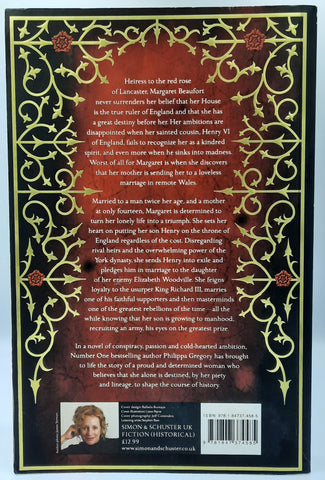 Heiress to the red rose
of Lancaster, Margaret Beaufort
never surrenders her belief that her House
is the true ruler of England and that she has
a great destiny before her. Her ambitions are
disappointed when her sainted cousin, Henry VI
of England, fails to recognise her as a kindred
spirit, and even more when he sinks into madness.
Worst of all for Margaret is when she discovers
that her mother is sending her to a loveless
marriage in remote Wales.
Married to a man twice her age, and a mother
at only fourteen, Margaret is determined to
turn her lonely life into a triumph. She sets her
heart on putting her son Henry on the throne of
England regardless of the cost. Disregarding
rival heirs and the overwhelming power of the
York dynasty, she sends Henry into exile and
pledges him in marriage to the daughter
of her enemy Elizabeth Woodville. She feigns
loyalty to the usurper King Richard III, marries
one of his faithful supporters and then masterminds
one of the greatest rebellions of the time – all the
while knowing that her son is growing to manhood,
recruiting an army, his eyes on the greatest prize.
In a novel of conspiracy, passion and cold-hearted ambition,
Number One bestselling author Philippa Gregory has brought
to life the story of a proud and determined woman who
believes that she alone is destined, by her piety
and lineage, to shape the course of history.
SIMON & SCHUSTER UK
FICTION (HISTORICAL)
£12.99
www.simonandschuster.co.uk